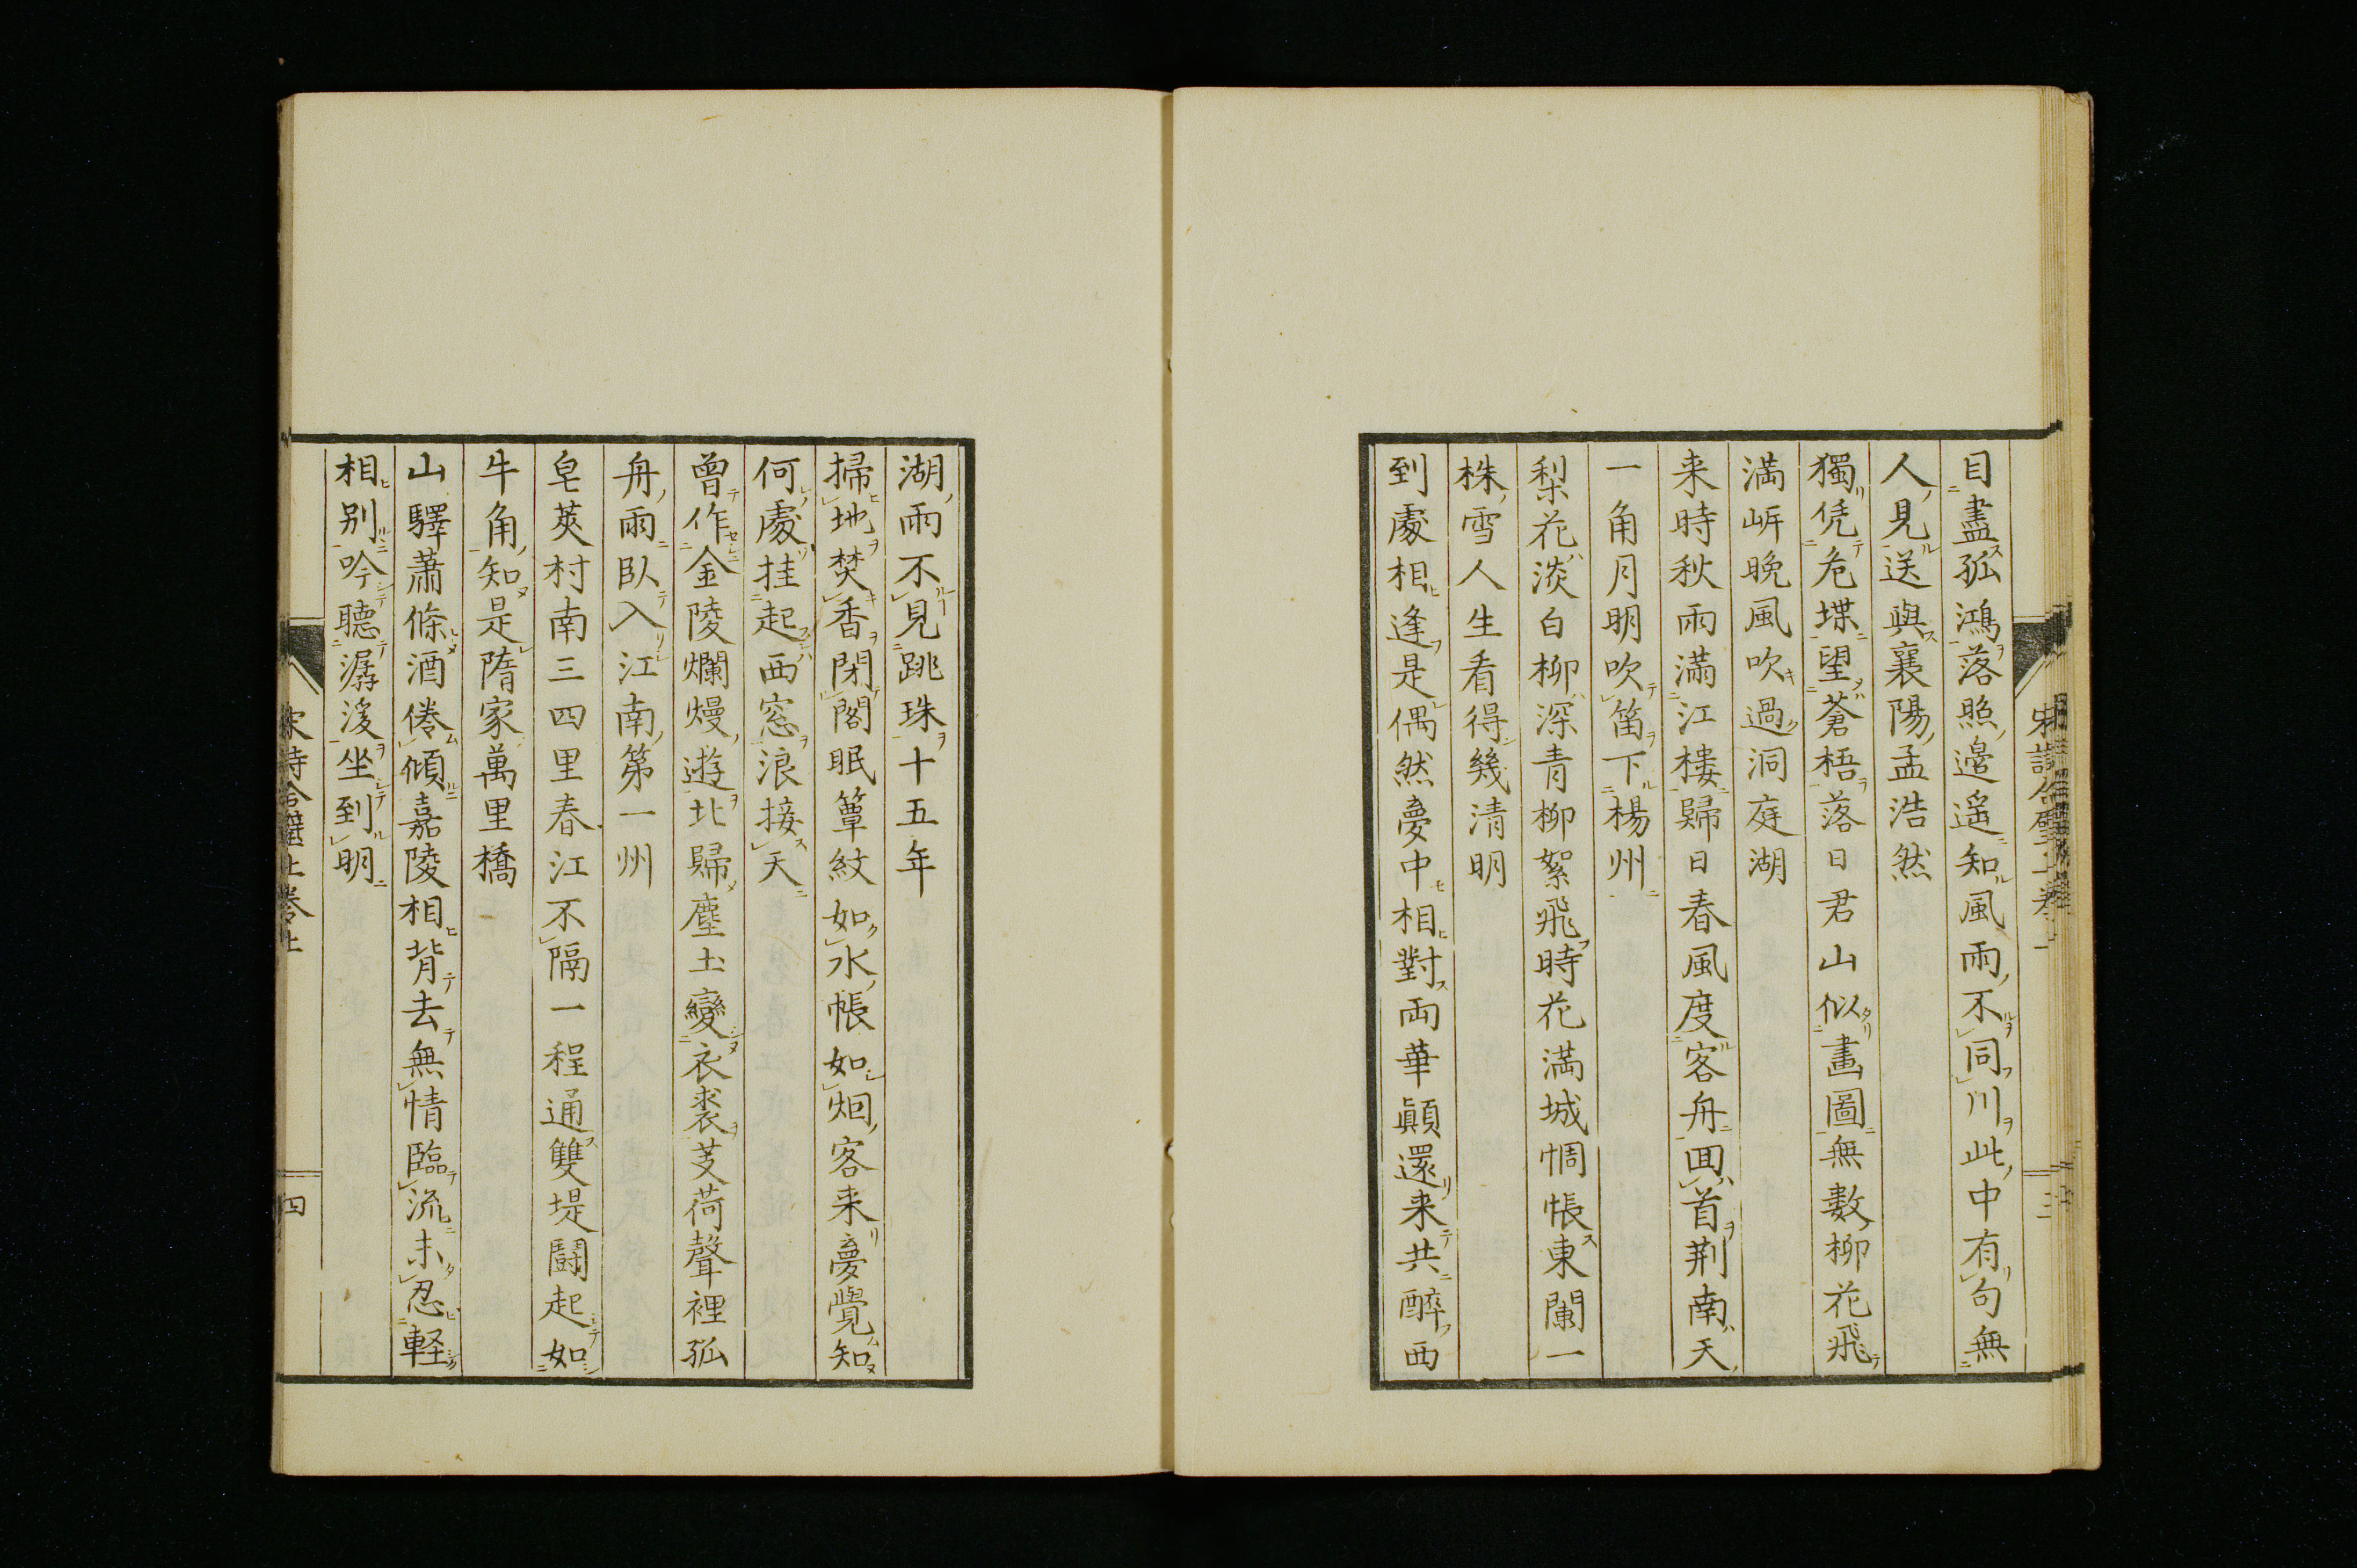 目盡孤鴻落照邉遥知風雨不同川此中有句無
人見送與襄陽孟浩然
獨凭危堞望蒼梧落日君山似畫圖無數柳花飛
満岍晩風吹過洞庭湖
来時秋雨滿江樓歸日春風度客舟囬首荆南天
一角月明吹笛下楊州
梨花淡白柳深青柳絮飛時花満城惆帳東闌一
株雪人生看得幾清明
到處相逢是偶然夢中相對両華顚還来共醉西
湖雨不見跳珠十五年
掃地焚香閉閣眠簟紋如水帳如烟客来夢覺知
何處挂起西窓浪接天
曽作金陵爛熳遊北歸塵土變衣裘芰荷聲裡孤
舟雨臥入江南第一州
皂莢村南三四里春江不隔一程通雙堤鬪起如
牛角知是隋家萬里橋
山驛蕭條酒倦傾嘉陵相背去無情臨流未忍軽
相别吟聽潺湲坐到明
宋詩合璧上卷上
四